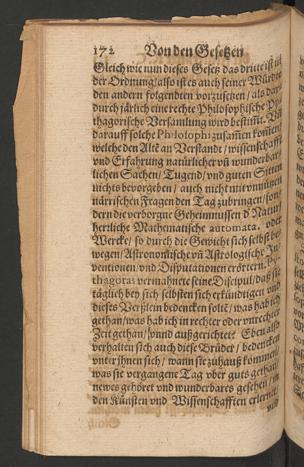 172 Von den Gesetzen
Gleich wie nun dieses Gesetz das dritte ist in
der Ordnung/ also ist es auch seiner Würdi
den andern folgenden vorzusetzen/ als dar
durch järlich eine rechte Philosophische Py
thagorische Versamlung wird bestimt. Vn
darauff solche Philosophi zusamen kom̃en
welche den Altẽ an Verstande/ wissenschafft
vnd Erfahrung natürlicher vñ wunderbar
lichen Sachen/ Tugend/ vnd guten Sitten
nichts bevorgeben/ auch nicht mit vnnützen
närrischen Fragen den Tag zubringen/ son
dern die verborgne Geheimnussen d' Natur
herrliche Mathematische automata, oder
Wercke/ so durch die Gewicht sich selbst be
wegen/ Astronomische vñ Astrologische In
ventionen/ vnd Disputationen erörtern. Py
thagoras vermahnete seine Discipul/ daß sie
täglich bey sich selbsten sich erkündigen vnd
dieses Verßlein bedencken solte/ was hab ich
gethan/ was hab ich in rechter oder vnrechter
Zeit gethan/ vnnd außgerichtet? Eben also
verhalten sich auch diese Brüder/ bedencken
vnter jhnen sich/ wann sie zuhauß kommen/
was sie vergangene Tag vber guts gethan/
newes gehöret vnd wunderbares gesehen/ in
den Künsten vnd Wissenschafften erlernet/
vnd